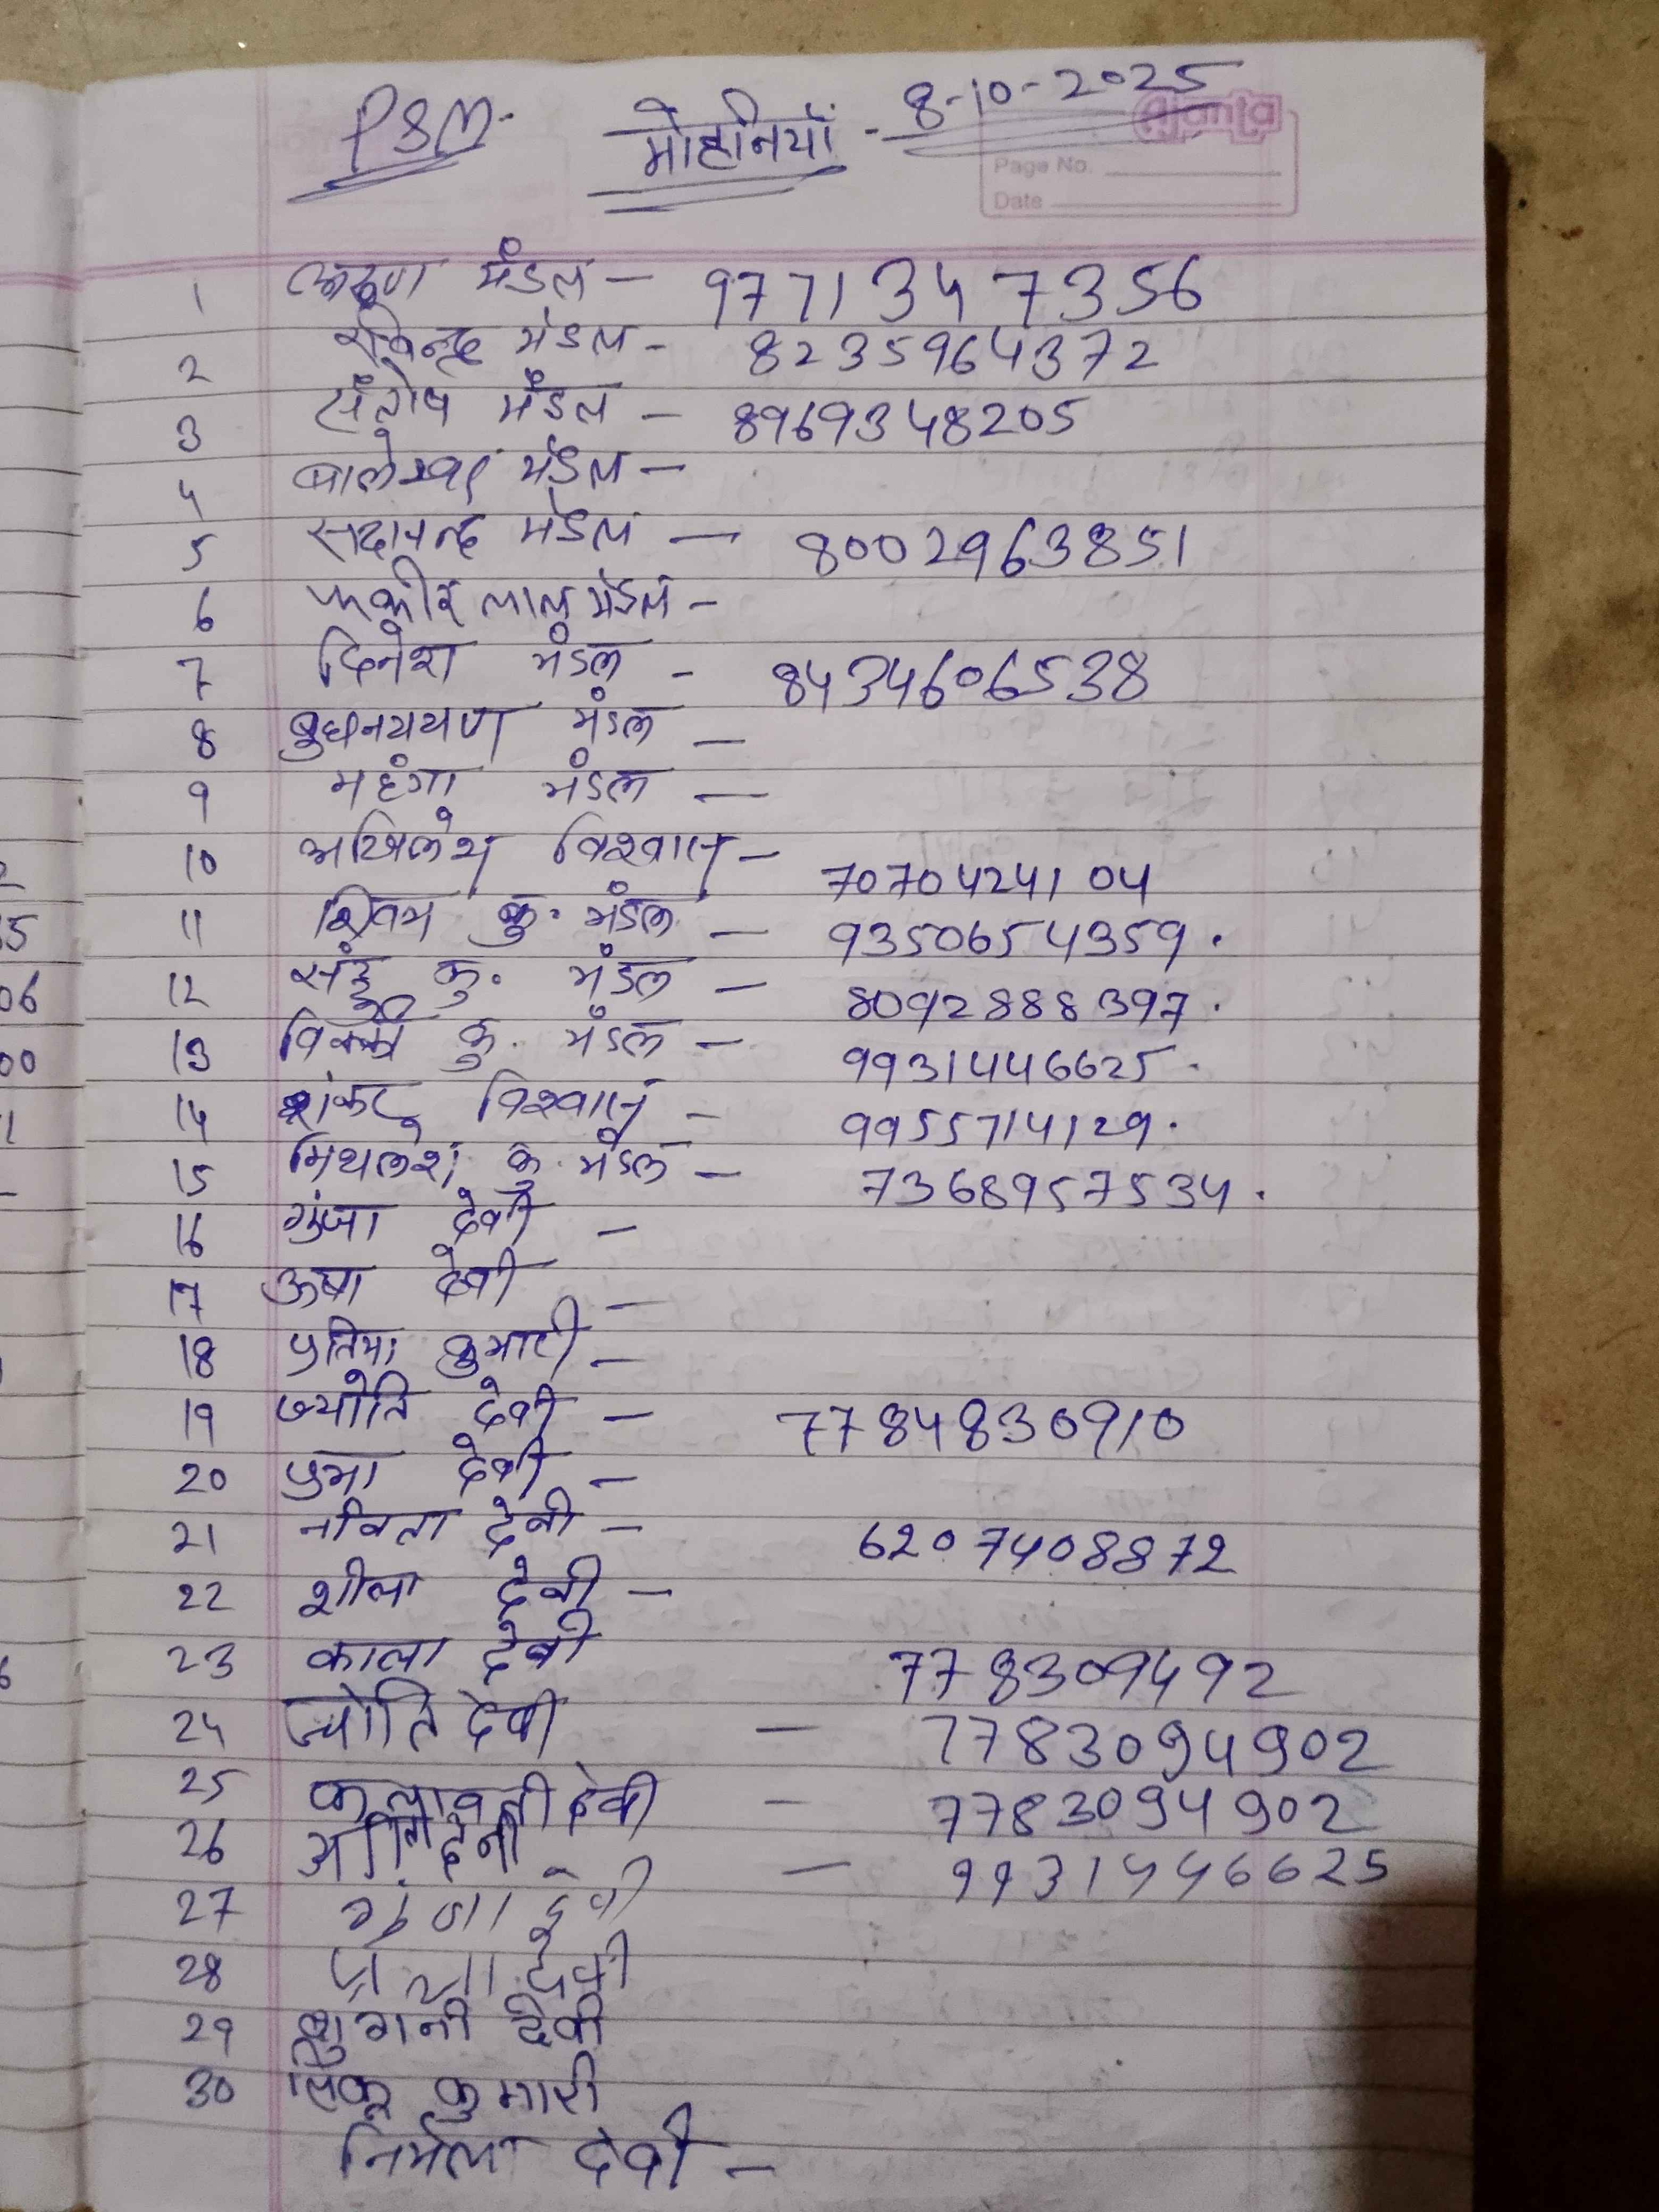 PSM. मोहनियाँ - 8-10-2025
Ajanta
Page No.
Date
1 अरूण मंडल - 9771347356
2 रविन्द्र मंडल - 8235964372
3 संतोष मंडल - 8969348205
4 बालेश्वर मंडल -
5 सदानन्द मंडल - 8002963851
6 फकीर लाल मंडल -
7 दिनेश मंडल - 8434606538
8 बुधनारायण मंडल -
9 महंगा मंडल -
10 अखिलेश विश्वास - 7070424104
11 शिवम कु. मंडल - 9350654359.
12 कु. मंडल - 8092888397.
13 विक्की कु. मंडल - 9931446625.
14 शंकर विश्वास - 9955714129.
15 मिथलेश कु. मंडल - 7368957534.
16 गुंजा देवी -
17 ऊषा देवी -
18 प्रतिमा कुमारी -
19 ज्योति देवी - 7784830910
20 प्रभा देवी -
21 नविता देवी - 6207408872
22 शीला देवी -
23 काला देवी 778309492
24 ज्योति देवी - 7783094902
25 कलावती देवी - 7783094902
26 देवी - 9931446625
27 देवी
28 देवी
29 देवी
30 कुमारी
निर्मला देवी -